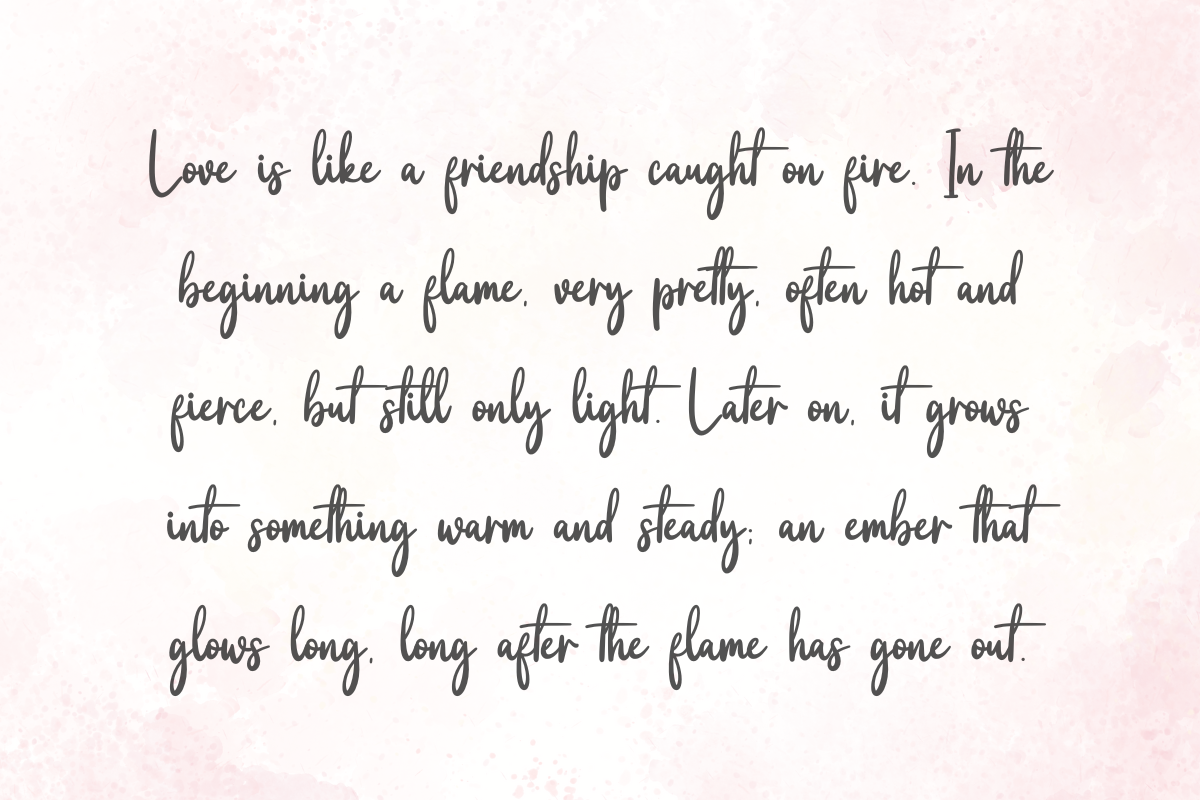 Love is like a friendship caught on fire. In the
beginning a flame, very pretty, often hot and
fierce, but still only light. Later on, it grows
into something warm and steady; an ember that
glows long, long after the flame has gone out.